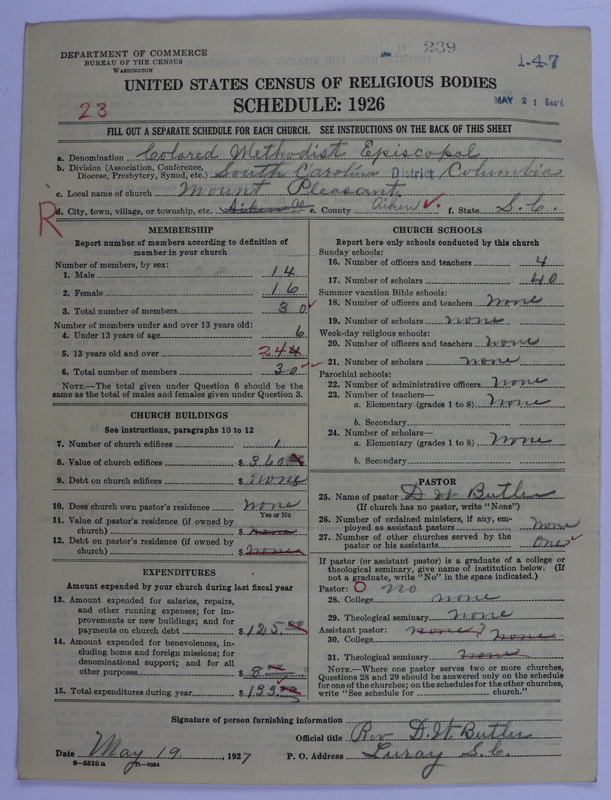 239
DEPARTMENT OF COMMERCE
BUREAU OF THE CENSUS
WASHINGTON
1-47
UNITED STATES CENSUS OF RELIGIOUS BODIES
23
SCHEDULE: 1926
MAY 21 Rec'd
FILL OUT A SEPARATE SCHEDULE FOR EACH CHURCH. SEE INSTRUCTIONS ON THE BACK OF THIS SHEET
a. Denomination Colored Methodist Episcopal
b. Division (Association, Conference, Diocese, Presbytery, Synod, etc.) South Carolina District Columbia
c. Local name of church Mount Pleasant
R
d. City, town, village, or township, etc. Aiken Co e. County Aiken ✓ f. State S. C.
MEMBERSHIP
Report number of members according to definition of
member in your church
Number of members, by sex:
1. Male 14
2. Female 16
3. Total number of members 30 ✓
Number of members under and over 13 years old:
4. Under 13 years of age 6
5. 13 years old and over 24
6. Total number of members 30 ✓
NOTE.—The total given under Question 6 should be the
same as the total of males and females given under Question 3.
CHURCH BUILDINGS
See instructions, paragraphs 10 to 12
7. Number of church edifices 1
8. Value of church edifices $ 360
9. Debt on church edifices $ none
10. Does church own pastor's residence none
Yes or No
11. Value of pastor's residence (if owned by
church) $ none
12. Debt on pastor's residence (if owned by
church) $ none
EXPENDITURES
Amount expended by your church during last fiscal year
13. Amount expended for salaries, repairs,
and other running expenses; for im-
provements or new buildings; and for
payments on church debt $ 125.
14. Amount expended for benevolences, in-
cluding home and foreign missions; for
denominational support; and for all
other purposes $ 8
15. Total expenditures during year $ 133
CHURCH SCHOOLS
Report here only schools conducted by this church
Sunday schools:
16. Number of officers and teachers 4
17. Number of scholars 40
Summer vacation Bible schools:
18. Number of officers and teachers none
19. Number of scholars none
Week-day religious schools:
20. Number of officers and teachers none
21. Number of scholars none
Parochial schools:
22. Number of administrative officers none
23. Number of teachers—
a. Elementary (grades 1 to 8) none
b. Secondary
24. Number of scholars—
a. Elementary (grades 1 to 8) none
b. Secondary
PASTOR
25. Name of pastor D. W. Butler
(If church has no pastor, write "None")
26. Number of ordained ministers, if any, em-
ployed as assistant pastors none
27. Number of other churches served by the
pastor or his assistants one ✓
If pastor (or assistant pastor) is a graduate of a college or
theological seminary, give name of institution below. (If
not a graduate, write "No" in the space indicated.)
Pastor: O no
28. College none
29. Theological seminary none
Assistant pastor: none
30. College none
31. Theological seminary none
NOTE.—Where one pastor serves two or more churches,
Questions 28 and 29 should be answered only on the schedule
for one of the churches; on the schedules for the other churches,
write "See schedule for church."
Signature of person furnishing information
Official title Rev. D. W. Butler
Date May 19, 1927 P. O. Address Luray S. C.
8—5518 a 11—9034